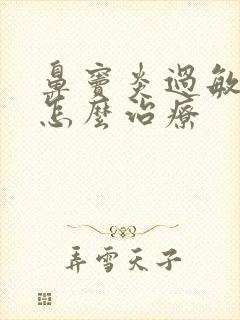 鼻竇炎過敏
怎麼治療
弄雪天子